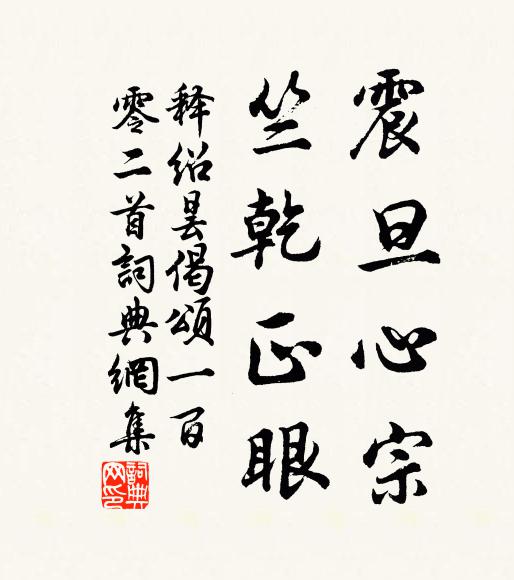 震旦心宗
竺乾正眼
释绍昙偈頌一百
零二首詞典網集
詞典网印